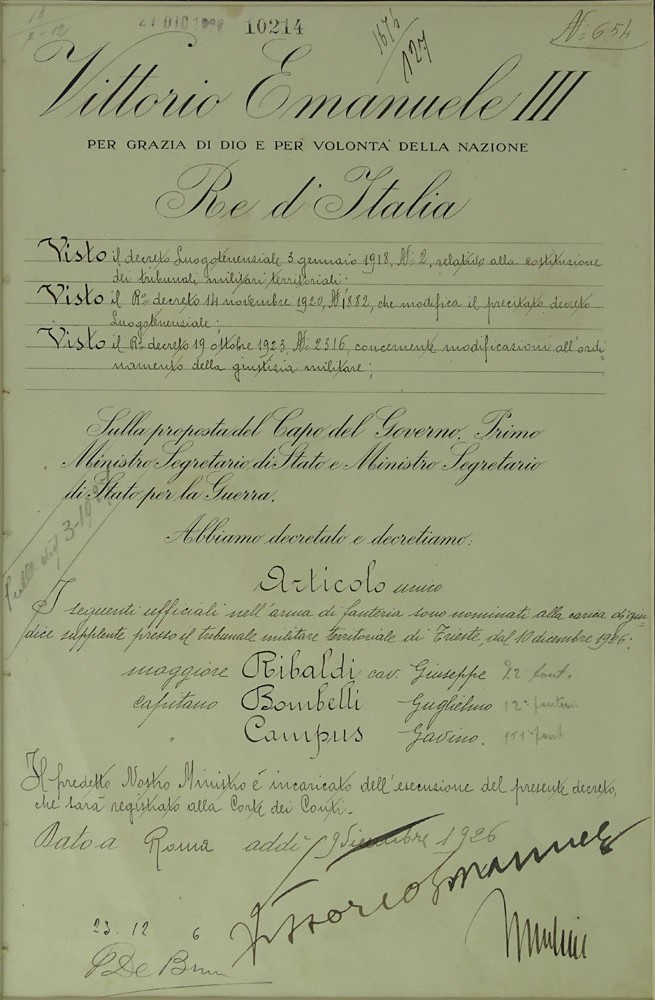 21 DIC 10214 N: 654
167½
127
Vittorio Emanuele III
PER GRAZIA DI DIO E PER VOLONTA' DELLA NAZIONE
Re d'Italia
Visto il decreto Luogotenenziale 3 gennaio 1918, N: 2, relativo alla costituzione
dei tribunali militari territoriali;
Visto il R° decreto 14 novembre 1920, N. 1882, che modifica il precitato decreto
Luogotenenziale;
Visto il R° decreto 19 ottobre 1923, N: 2316, concernente modificazioni all'ordi=
namento della giustizia militare;
Sulla proposta del Capo del Governo, Primo
Ministro Segretario di Stato e Ministro Segretario
di Stato per la Guerra.
Abbiamo decretato e decretiamo:
Articolo unico
I seguenti ufficiali nell'arma di fanteria sono nominati alla carica di giu=
dice supplente presso il tribunale militare territoriale di Trieste, dal 10 dicembre 1926:
maggiore Ribaldi cav. Giuseppe
capitano Bombelli Guglielmo 12° fanteria
" Campus Gavino. 151° fant
Il predetto Nostro Ministro è incaricato dell'esecuzione del presente decreto,
che sarà registrato alla Corte dei Conti.
Dato a Roma addì 9 dicembre 1926
Vittorio Emanuele
23. 12 6